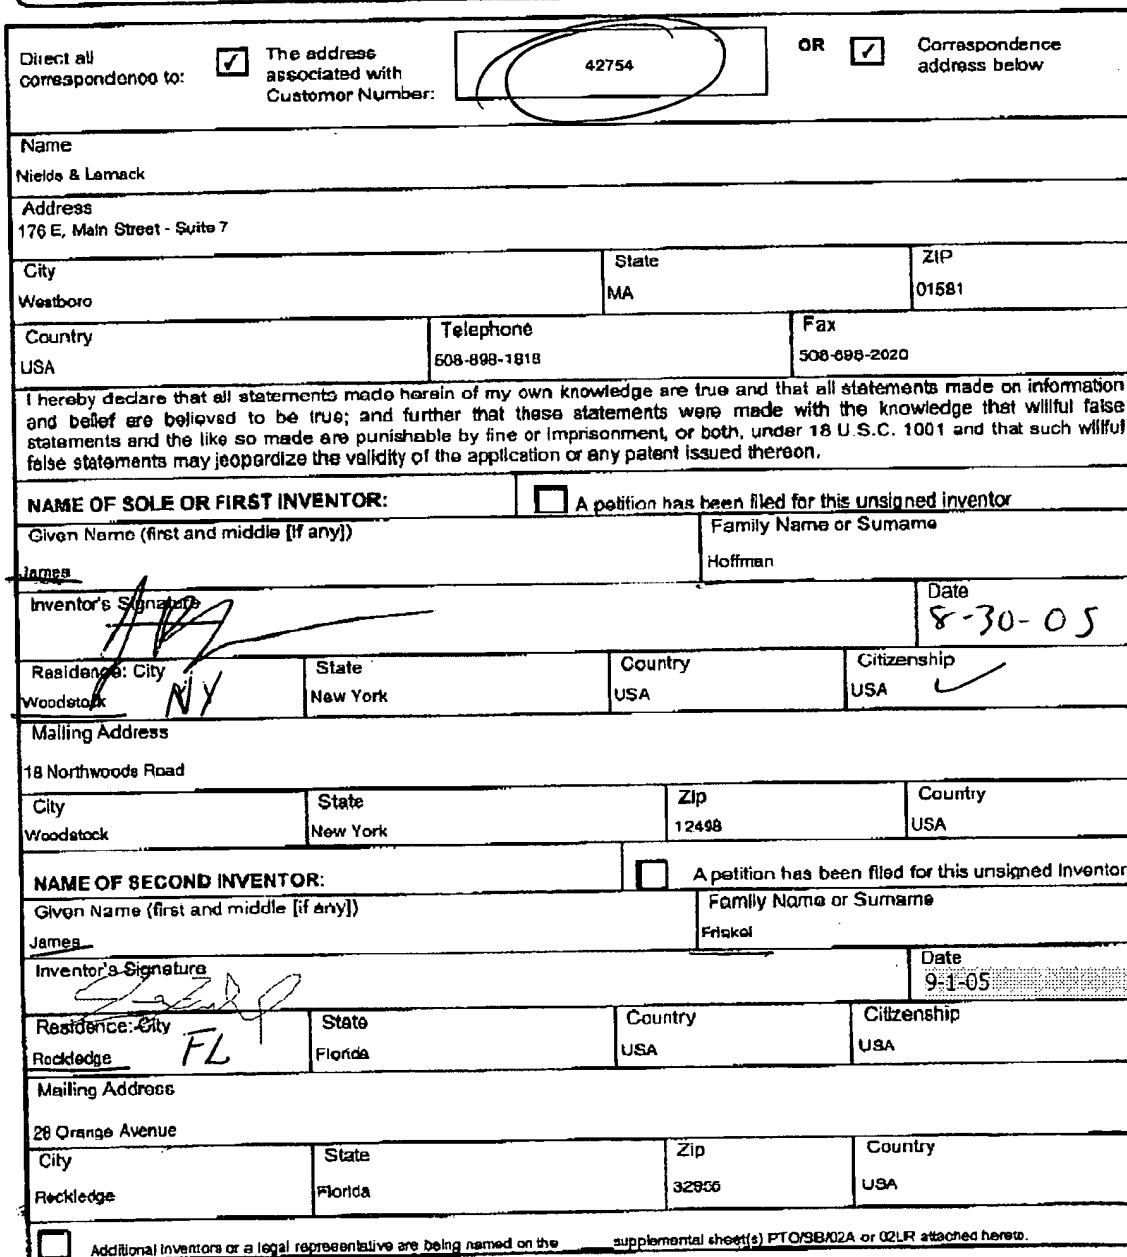 Direct all correspondence to: ☑ The address associated with Customer Number: 42754 OR ☑ Correspondence address below
Name
Nields & Lemack
Address
176 E, Main Street - Suite 7
City State ZIP
Westboro MA 01581
Country Telephone Fax
USA 508-898-1818 508-898-2020
I hereby declare that all statements made herein of my own knowledge are true and that all statements made on information
and belief are believed to be true; and further that these statements were made with the knowledge that willful false
statements and the like so made are punishable by fine or imprisonment, or both, under 18 U.S.C. 1001 and that such willful
false statements may jeopardize the validity of the application or any patent issued thereon.
NAME OF SOLE OR FIRST INVENTOR: ☐ A petition has been filed for this unsigned inventor
Given Name (first and middle [if any]) Family Name or Surname
James Hoffman
Inventor's Signature Date
8-30-05
Residence: City State Country Citizenship
Woodstock NY New York USA USA
Mailing Address
18 Northwoods Road
City State Zip Country
Woodstock New York 12498 USA
NAME OF SECOND INVENTOR: ☐ A petition has been filed for this unsigned Inventor
Given Name (first and middle [if any]) Family Name or Surname
James Friskel
Inventor's Signature Date
9-1-05
Residence: City State Country Citizenship
Rockledge FL Florida USA USA
Mailing Address
28 Orange Avenue
City State Zip Country
Rockledge Florida 32955 USA
☐ Additional inventors or a legal representative are being named on the ____ supplemental sheet(s) PTO/SB/02A or 02LR attached hereto.